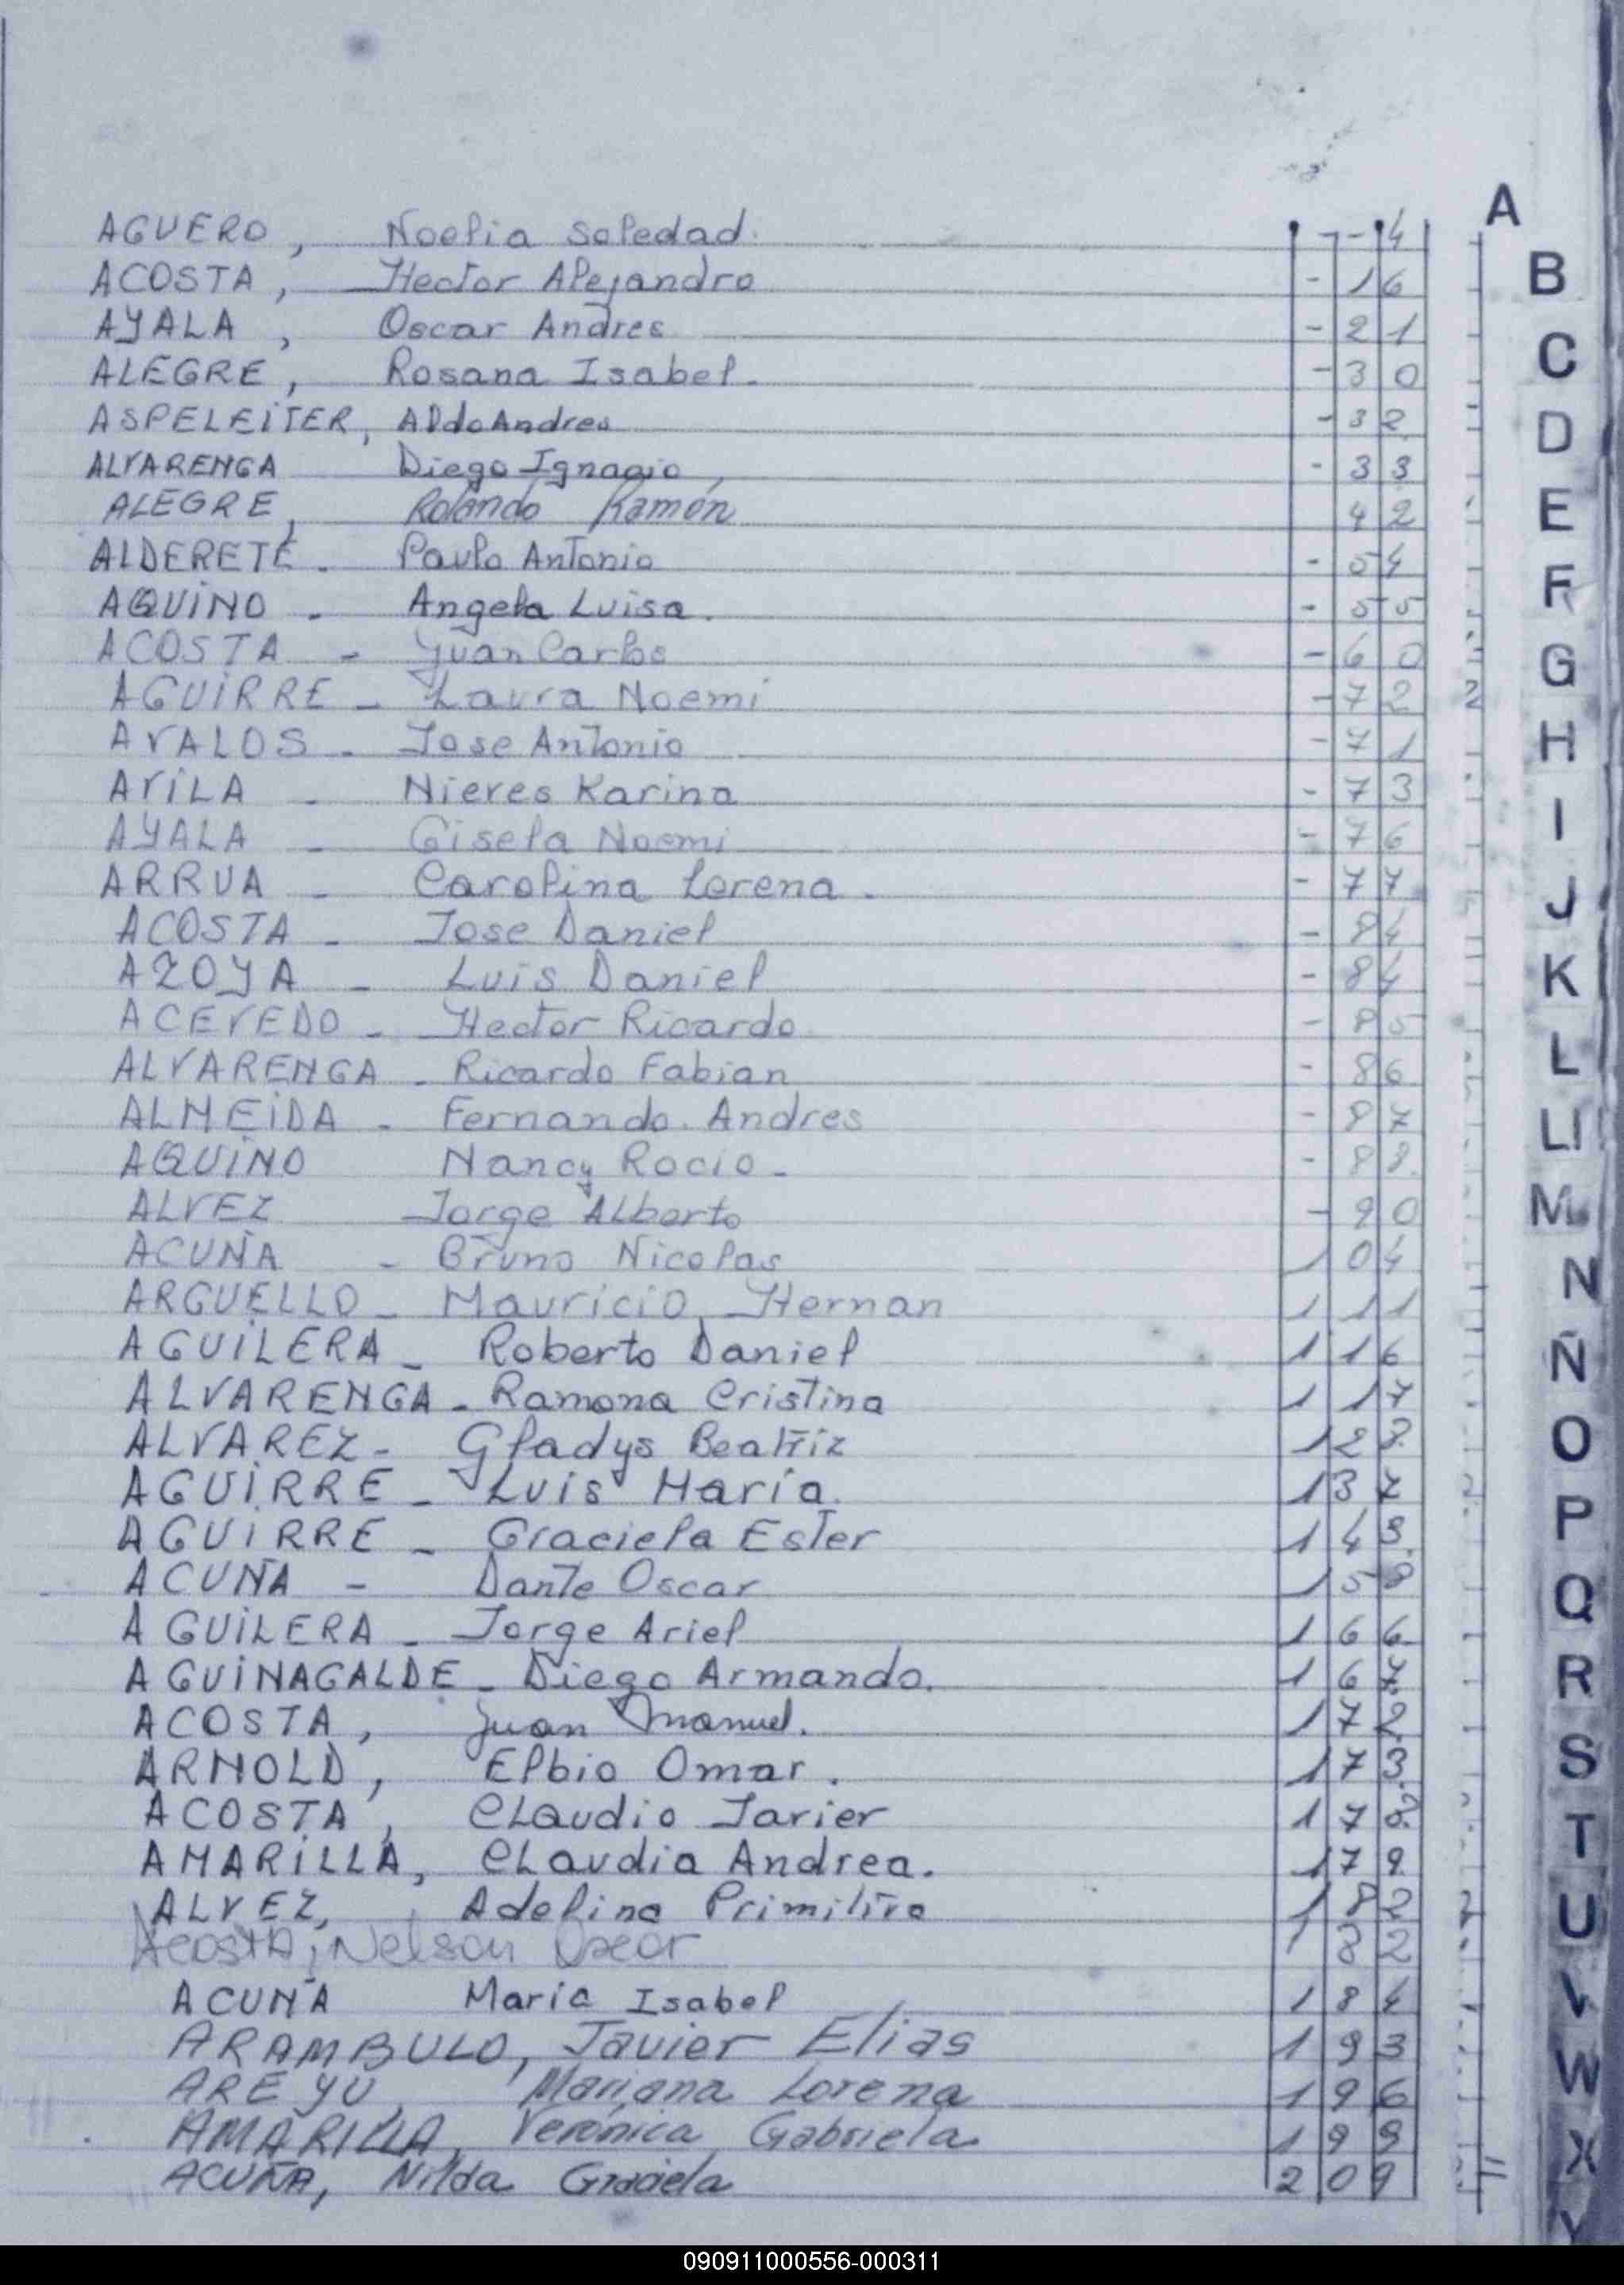 A
AGUERO, Noelia Soledad. - - 4
ACOSTA, Hector Alejandro - 16
AYALA, Oscar Andres - 21
ALEGRE, Rosana Isabel. - 30
ASPELEITER, Aldo Andres - 32
ALVARENGA Diego Ignacio - 33
ALEGRE, Rolando Ramón 42
ALDERETE - Paulo Antonio - 54
AQUINO - Angela Luisa. - 55
ACOSTA - Juan Carlos - 60
AGUIRRE - Laura Noemi - 72
AVALOS - Jose Antonio - 71
AVILA - Nieves Karina - 73
AYALA - Gisela Noemi - 76
ARRUA - Carolina Lorena. - 77
ACOSTA - Jose Daniel - 84
AZOYA - Luis Daniel - 84
ACEVEDO - Hector Ricardo - 85
ALVARENGA - Ricardo Fabian - 86
ALMEIDA - Fernando Andres - 87
AQUINO Nancy Rocio - - 88
ALVEZ Jorge Alberto - 90
ACUÑA - Bruno Nicolas 104
ARGUELLO - Mauricio Hernan 111
AGUILERA - Roberto Daniel 116
ALVARENGA - Ramona Cristina 117
ALVAREZ - Gladys Beatriz 123
AGUIRRE - Luis Maria. 137
AGUIRRE - Graciela Ester 143
ACUÑA - Dante Oscar 158
AGUILERA - Jorge Ariel 166
AGUINAGALDE - Diego Armando. 167
ACOSTA, Juan Manuel. 172
ARNOLD, Elbio Omar. 173
ACOSTA, Claudio Javier 178
AMARILLA, Claudia Andrea. 179
ALVEZ, Adelina Primitiva 182
Acosta, Nelson Oscar 182
ACUÑA Maria Isabel 184
ARAMBULO, Javier Elias 193
AREYU, Mariana Lorena 196
AMARILLA, Verónica Gabriela 199
ACUÑA, Nilda Graciela 209
B
C
D
E
F
G
H
I
J
K
L
Ll
M
N
Ñ
O
P
Q
R
S
T
U
V
W
X
Y
090911000556-000311